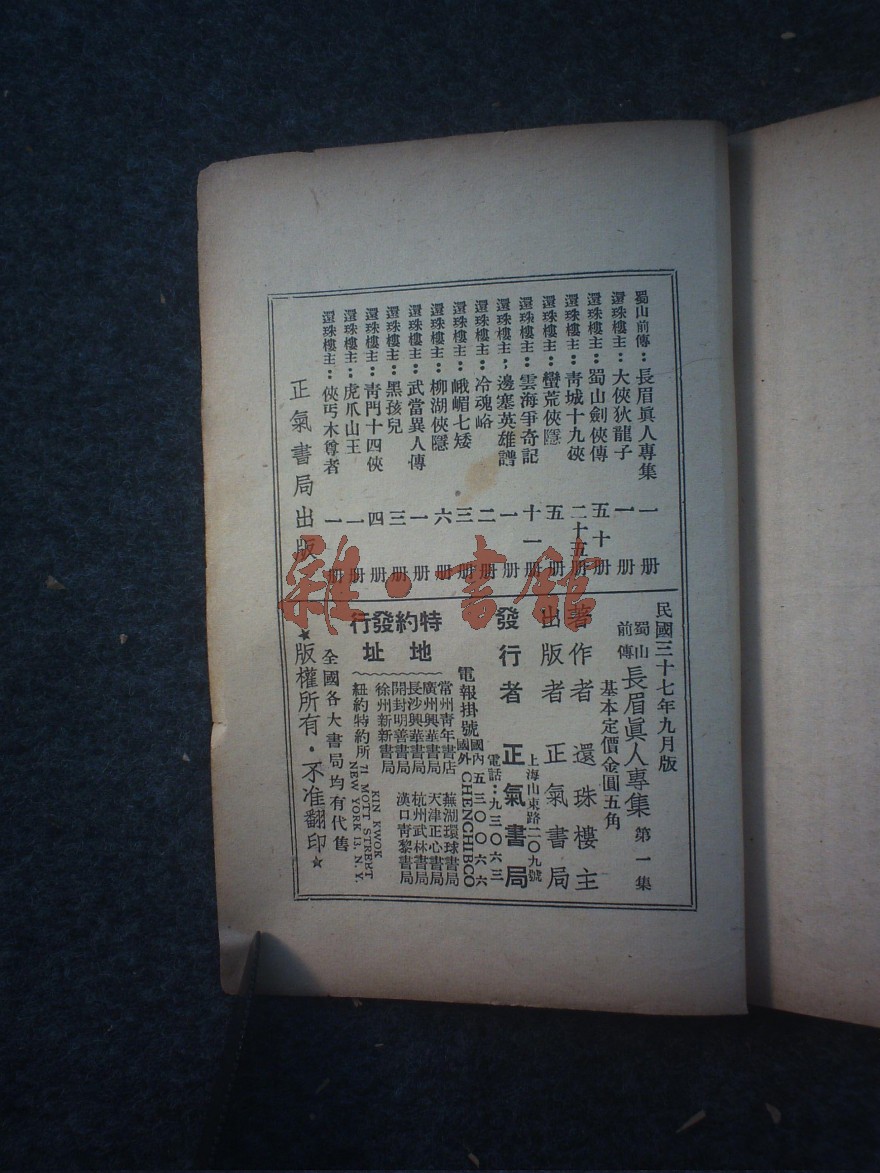 蜀山前傳：長眉眞人專集　一册
還珠樓主：大俠狄龍子　一册
還珠樓主：蜀山劍俠傳　五十册
還珠樓主：青城十九俠　二十五册
還珠樓主：蠻荒俠隱　五册
還珠樓主：雲海爭奇記　十一册
還珠樓主：邊塞英雄譜　一册
還珠樓主：冷魂峪　二册
還珠樓主：峨嵋七矮　三册
還珠樓主：柳湖俠隱　六册
還珠樓主：武當異人傳　一册
還珠樓主：黑孩兒　三册
還珠樓主：青門十四俠　四册
還珠樓主：虎爪山王　一册
還珠樓主：俠丐木尊者　一册
正氣書局出版
民國三十七年九月版
蜀山前傳 長眉眞人專集 第一集
基本定價金圓五角
著作者 還珠樓主
出版者 正氣書局
上海山東路二〇九號
發行者 正氣書局
電話：九三〇六三
電報掛號 國內五三〇〇六六
國外CHENCHIBCO
特約發行地址
常州青年書店 蕪湖環球書局
廣州興華書局 天津正心書局
長沙興華書局 杭州武林書局
開封明善書局 漢口青黎書局
徐州新新書局
紐約特約所 KIN KWOK
71 MOTT STREET
NEW YORK 13, N. Y.
全國各大書局均有代售
★版權所有・不准翻印★
雜・書館